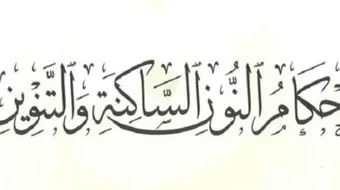 حكامُ ٱلنُّونِ ٱلسَّاكِنَةِ وَٱلتَّنْوِينِ